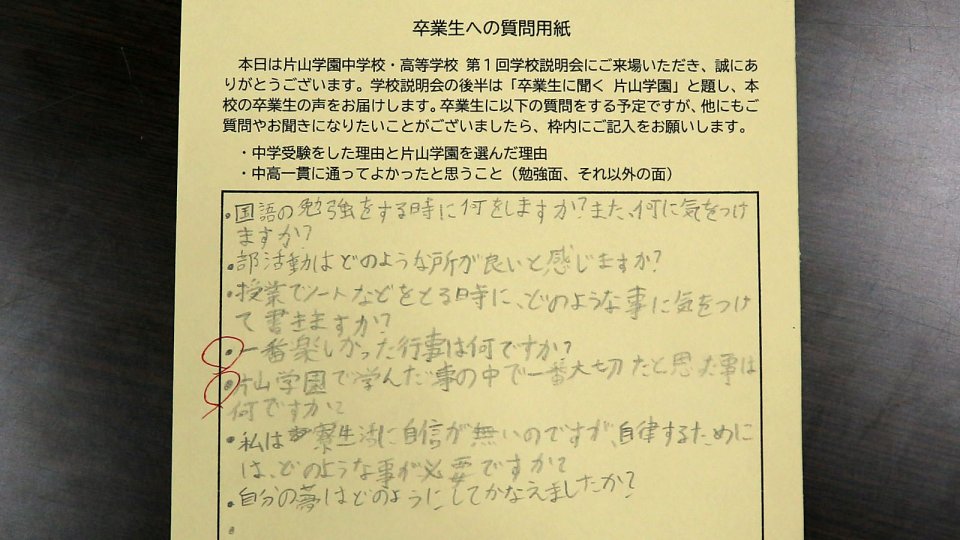 卒業生への質問用紙
本日は片山学園中学校・高等学校 第1回学校説明会にご来場いただき、誠にあ
りがとうございます。学校説明会の後半は「卒業生に聞く 片山学園」と題し、本
校の卒業生の声をお届けします。卒業生に以下の質問をする予定ですが、他にもご
質問やお聞きになりたいことがございましたら、枠内にご記入をお願いします。
・中学受験をした理由と片山学園を選んだ理由
・中高一貫に通ってよかったと思うこと（勉強面、それ以外の面）
・国語の勉強をする時に何をしますか？また、何に気をつけ
ますか？
・部活動はどのような所が良いと感じますか？
・授業でノートなどをとる時に、どのような事に気をつけ
て書きますか？
・一番楽しかった行事は何ですか？
・片山学園で学んだ事の中で一番大切だと思った事は
何ですか？
・私は寮生活に自信が無いのですが、自律するために
は、どのような事が必要ですか？
・自分の夢はどのようにしてかなえましたか？